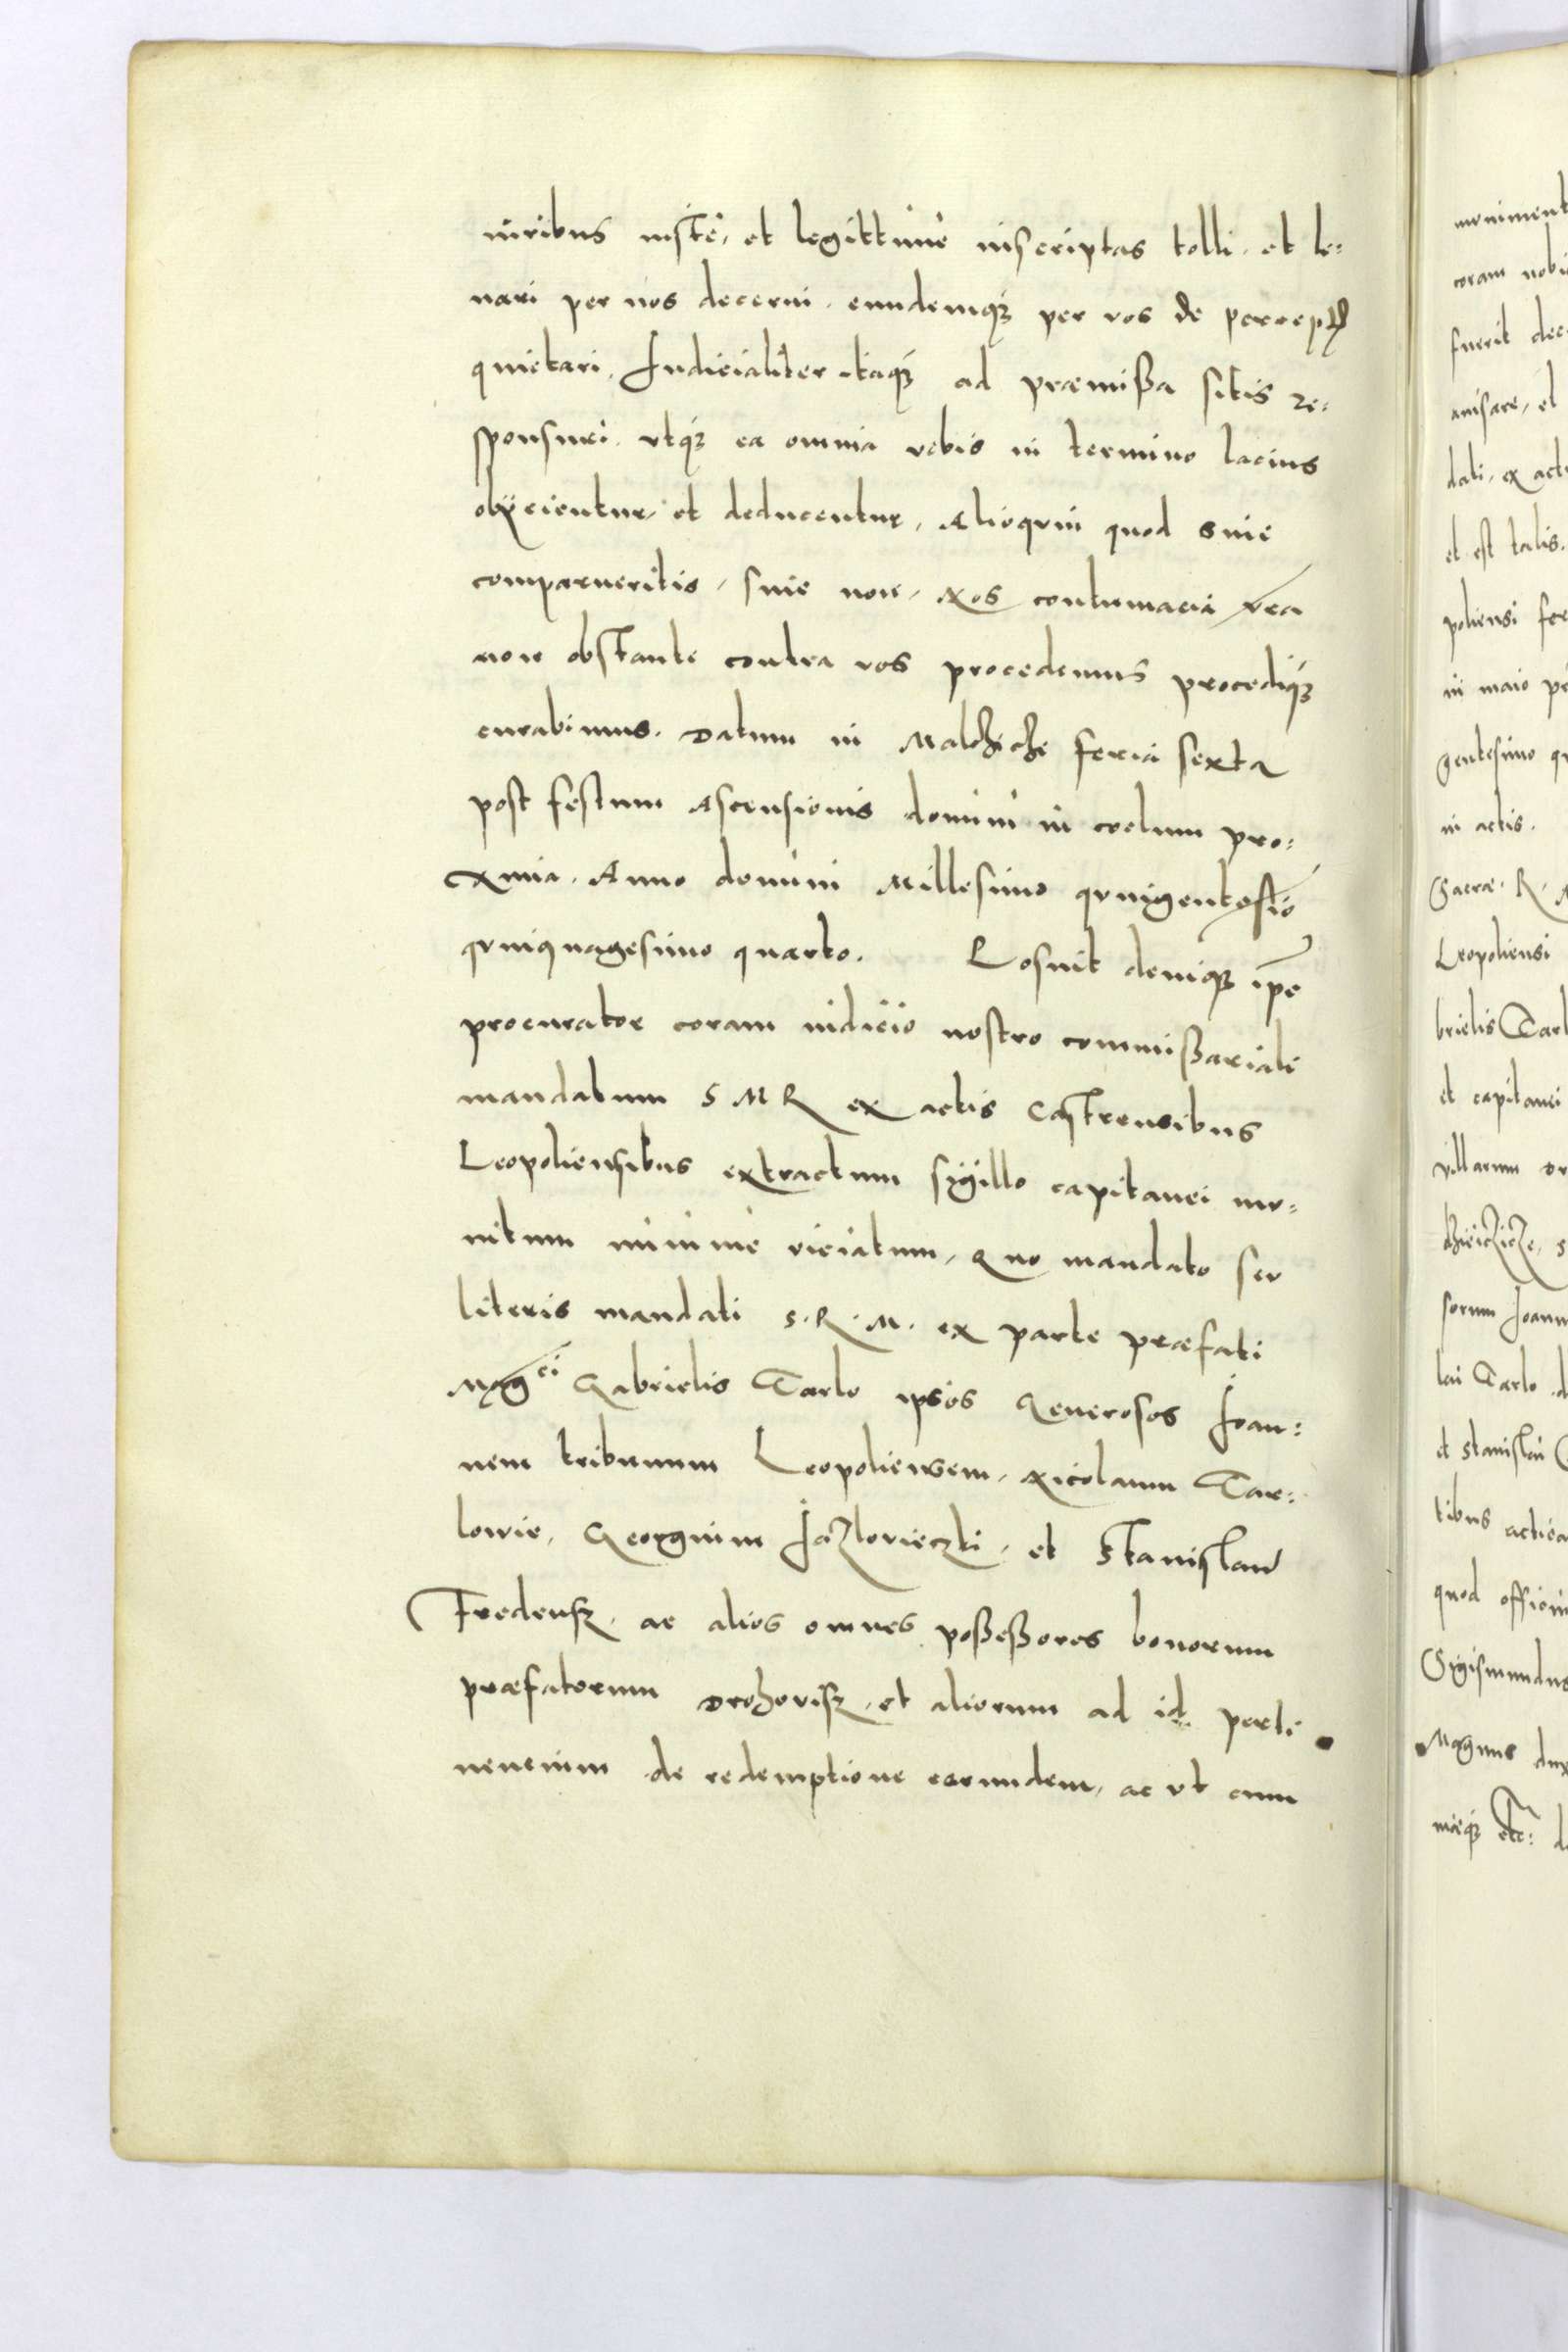 iuribus iuste, et legittime inscriptas tolli, et le=
uari per nos decerni, eundemq; per vos de perceptis
quietari. Iudicialiter itaq; ad præmißa sitis re=
sponsuri, vtq; ea omnia vobis in termino lacius
obijcientur, et deducentur, Alioquin quod siue
comparueritis, siue non, Nos contumacia vra
non obstante contra vos procedemus procediq;
curabimus. Datum in Malchicze feria sexta
post festum Ascensionis domini in coelum pro=
xima. Anno domini Millesimo quingentesio
quinquagesimo quarto. Posuit deniq; ipe
procurator coram iudicio nostro commißariali
mandatum S M R ex actis Castrensibus
Leopoliensibus extractum sigillo capitanei mu=
nitum minime viciatum, Quo mandato seu
literis mandati S. R. M. ex parte præfati
Mag^ci Gabrielis Tarlo ipsos Generosos Ioan=
nem tribunum Leopoliensem, Nicolaum Tar=
lowie, Georgium Jazlovieczki, et Stanislau
Fredensz, ac alios omnes poßeßores bonorum
præfatorum Drohovisz, et aliorum ad id perti
nencium de redemptione eorundem, ac vt cum
moniment
coram nobi
fuerit dec
auisare, et
dati, ex act
et est talis.
poliensi fer
in maio pe
gentesimo qu
in actis.
Sacræ R. M
Leopoliensi
brielis Tarl
et capitanei
villarum or
sorum Joann
lai Tarlo d
et Stanislai
tibus actica
quod officiu
Sigismundus
Magnus dux
niæq; etc: d